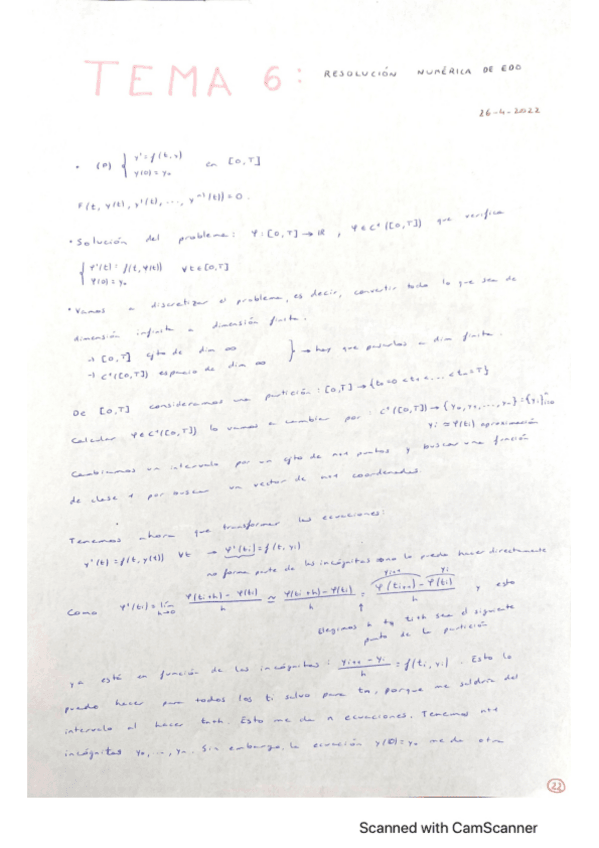 TEMA 6: RESOLUCIÓN NUMÉRICA DE EDO
26-4-2022
• (P) { y'=f(t,y) en [0,T]
y(0)=y₀
F(t, y(t), y'(t), ..., yⁿ⁻¹(t))=0.
• Solución del problema: φ:[0,T]→ℝ, φ∈C¹([0,T]) que verifica
{ φ'(t)=f(t,φ(t)) ∀t∈[0,T]
φ(0)=y₀
• Vamos a discretizar el problema, es decir, convertir todo lo que sea de
dimensión infinita a dimensión finita.
→ [0,T] cjto de dim ∞
→ C¹([0,T]) espacio de dim ∞ } → hay que pasarlos a dim finita.
De [0,T] consideramos una partición: [0,T]→{t₀=0<t₁<...<tₙ=T}
Calcular φ∈C¹([0,T]) lo vamos a cambiar por: C¹([0,T])→{y₀,y₁,...,yₙ}={yᵢ}ⁿᵢ₌₀
yᵢ ≃ φ(tᵢ) aproximación
Cambiamos un intervalo por un cjto de n+1 puntos y buscar una función
de clase 1 por buscar un vector de n+1 coordenadas.
Tenemos ahora que transformar las ecuaciones:
y'(t)=f(t,y(t)) ∀t → φ'(tᵢ)=f(t,yᵢ)
no forma parte de las incógnitas no lo puedo hacer directamente
yᵢ₊₁ yᵢ
Como φ'(tᵢ)=lím h→0 (φ(tᵢ+h)-φ(tᵢ))/h ≃ (φ(tᵢ+h)-φ(tᵢ))/h = (φ(tᵢ₊₁)-φ(tᵢ))/h y esto
Elegimos h tq tᵢ+h sea el siguiente
punto de la partición
ya está en función de las incógnitas: (yᵢ₊₁-yᵢ)/h = f(tᵢ,yᵢ). Esto lo
puedo hacer para todos los tᵢ salvo para tₙ, porque me saldría del
intervalo al hacer tₙ+h. Esto me da n ecuaciones. Tenemos n+1
incógnitas y₀,...,yₙ. Sin embargo, la ecuación y(0)=y₀ me da otra
22
Scanned with CamScanner